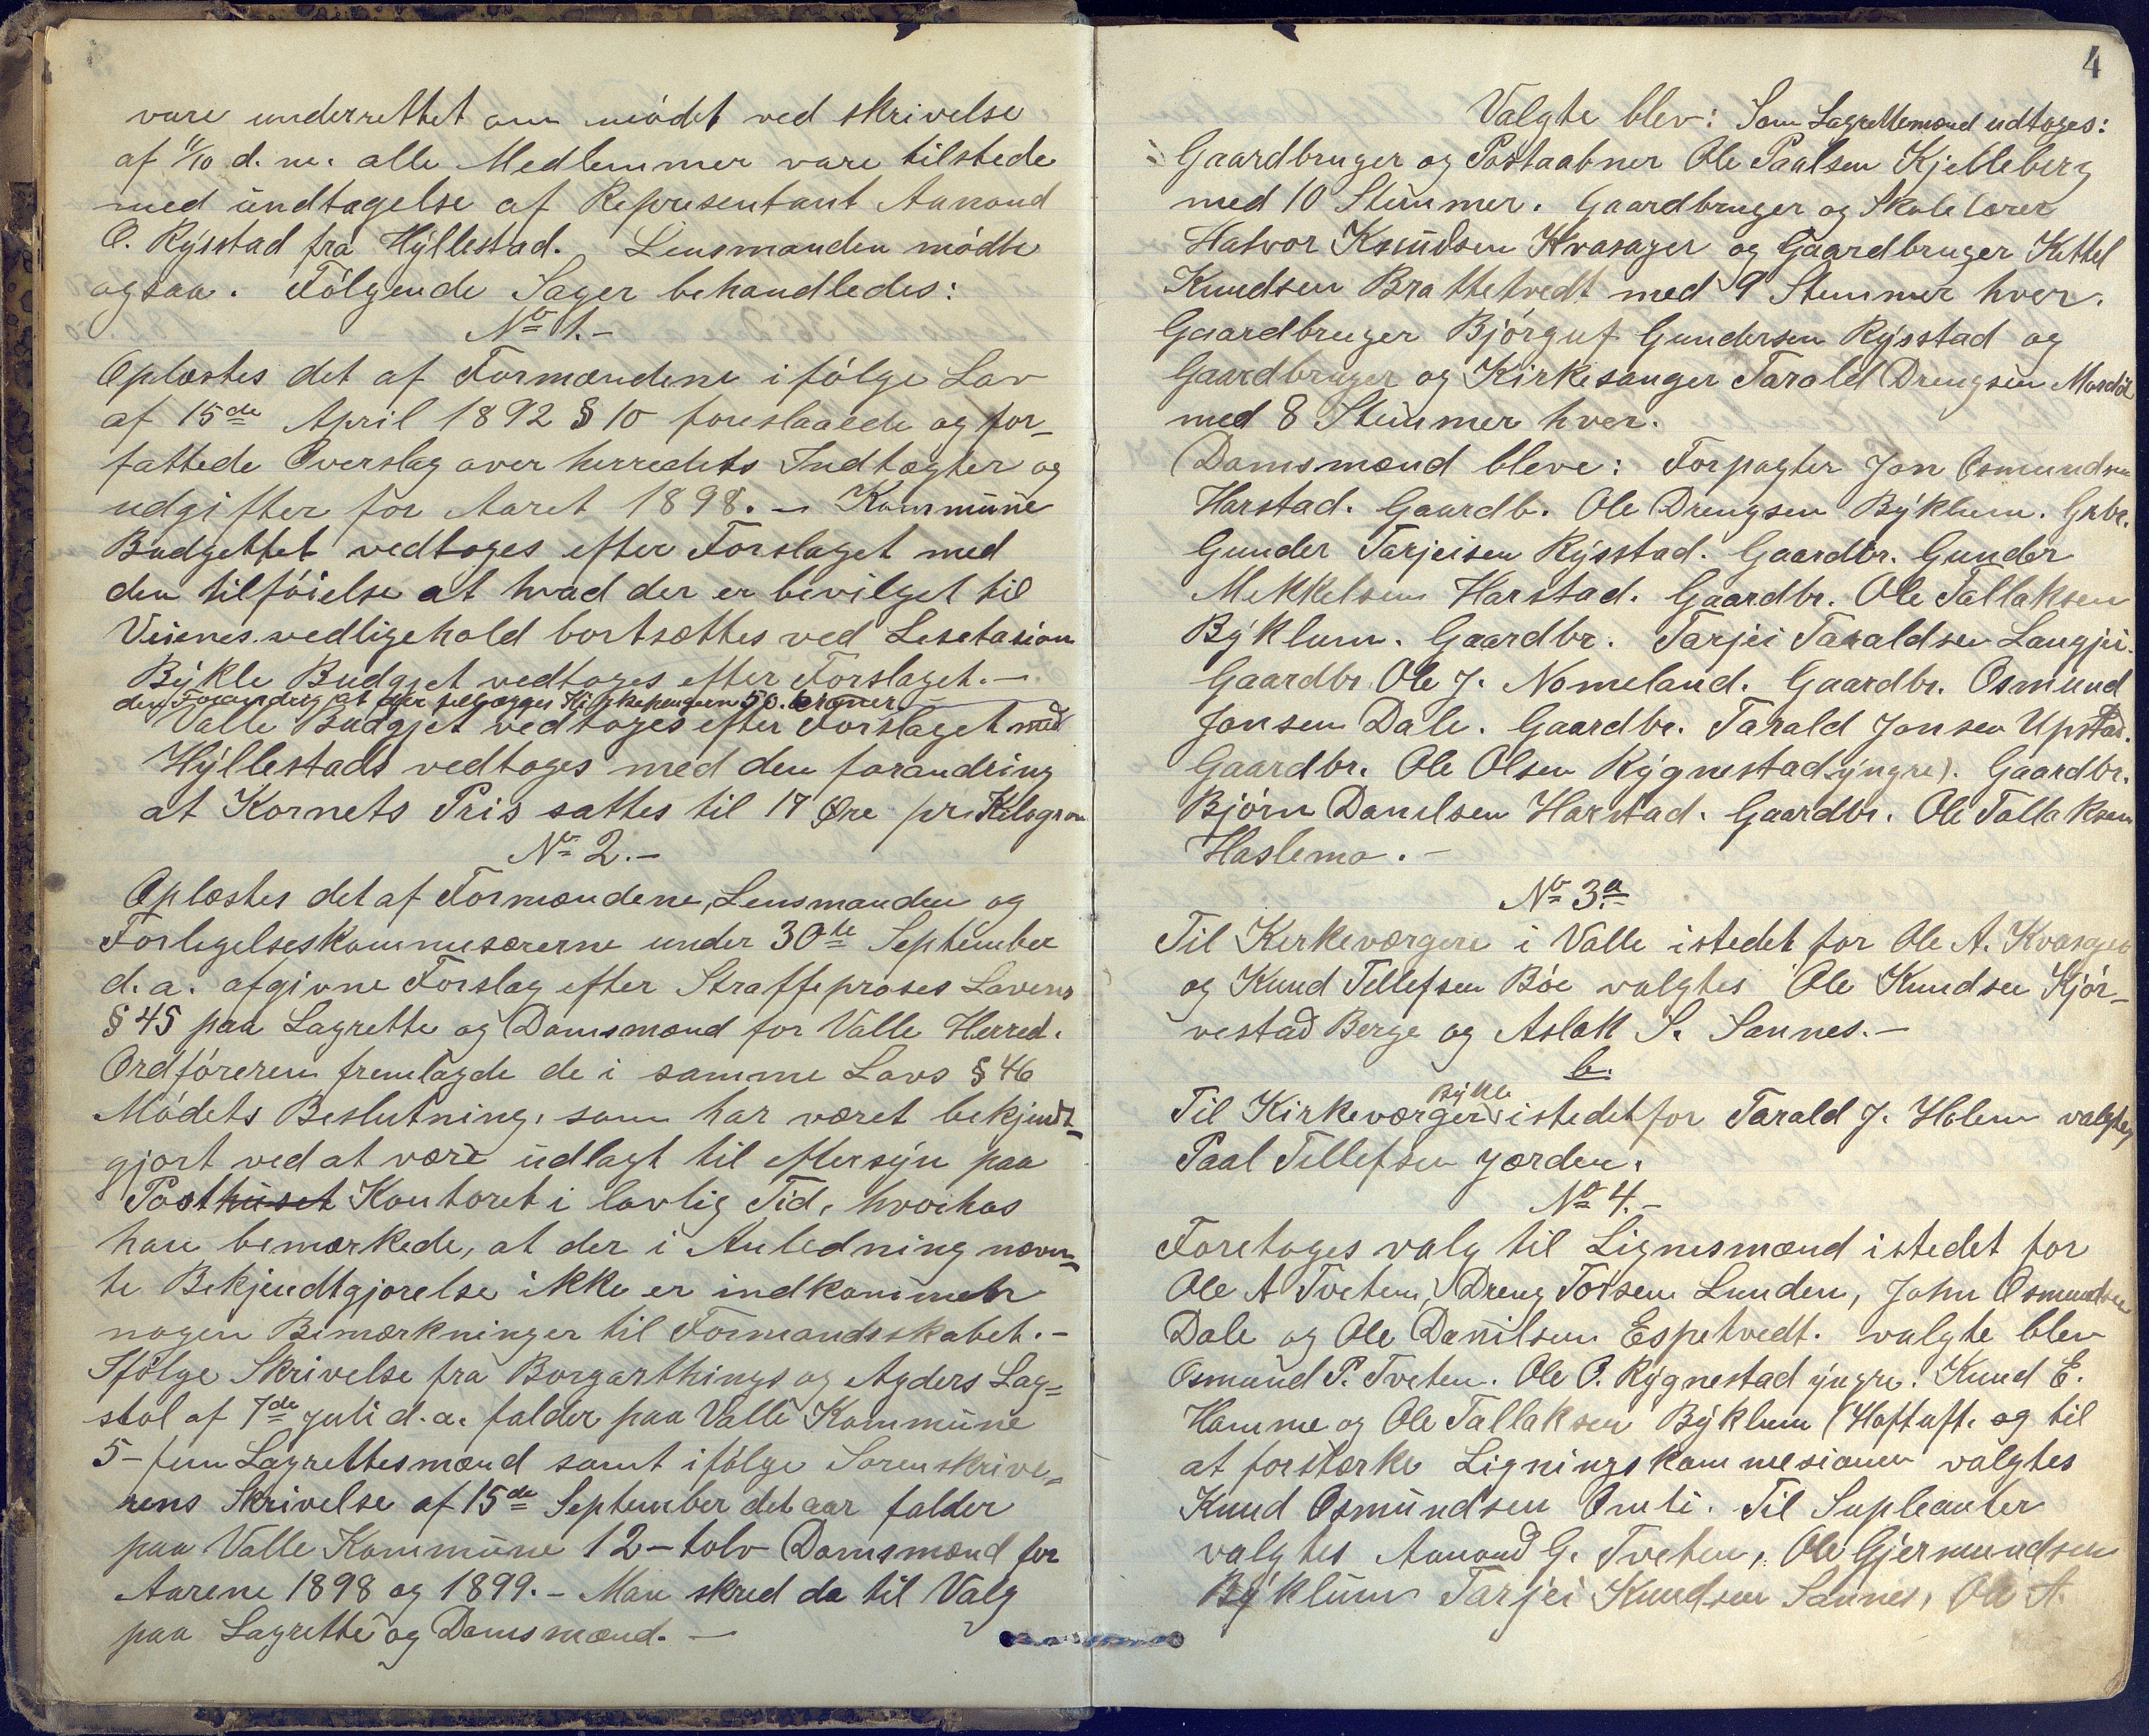 vare underrettet om mødet ved skrivelse
af 11/10 d. m. alle Medlemmer vare tilstede
med undtagelse af Representant Aanond
O. Rysstad fra Hyllestad. Lensmanden mødte
ogsaa. Følgende Sager behandledes:
No 1.-
Oplæstes det af Formændene i følge Lov
af 15de April 1892 § 10 foreslaaede og for-
fattede Overslag over herredets Indtægter og
udgifter for Aaret 1898. - Kommune
Budgettet vedtoges efter Forslaget med
den tilføielse at hvad der er bevilget til
Veienes vedligehold bortsættes ved Lisetasion
Bykle Budgjet vedtoges efter Forslaget. -
den Forandring at der tillægges 50. kroner
Valle Budgjet vedtoges efter Forslaget med
Hyllestads vedtoges med den forandring
at Kornets Pris sattes til 17 Øre pr. Kilogram
No 2.-
Oplæstes det af Formændene, Lensmanden og
Forligelseskommisærerne under 30te September
d. a. afgivne Forslag efter Straffeproses Lovens
§ 45 paa Lagrette og Domsmænd for Valle Herred.
Ordføreren fremlagde de i samme Lovs § 46
Mødets Beslutning, som har været bekjendt-
gjort ved at være udlagt til eftersyn paa
Posthuset Kontoret i lovlig Tid, hvorhos
han bemærkede, at der i Anledning nævn-
te Bekjendtgjørelse ikke er indkommen
nogen Bemærkninger til Formandsskabet. -
Ifølge Skrivelse fra Borgarthings og Agders Lag-
stol af 7de juli d. a. falder paa Valle Kommune
5 - fem Lagrettesmænd samt ifølge Sorenskrive-
rens Skrivelse af 15de September det aar falder
paa Valle Kommune 12 - tolv Domsmænd for
Aarene 1898 og 1899. - Man skred da til Valg
paa Lagrette og Domsmænd. -
4
Valgte blev: Som Lagrettemænd udtoges:
Gaardbruger og Postaabner Ole Paalsen Kjelleberg
med 10 Stemmer. Gaardbruger og Skolelærer
Halvor Knudsen Kvasager og Gaardbruger Kittel
Knudsen Brattetvedt med 9 Stemmer hver.
Gaardbruger Bjørguf Gundersen Rysstad og
Gaardbruger og Kirkesanger Tarald Drengsen Mosdøl
med 8 Stemmer hver.
Domsmænd bleve: Forpagter Jon Osmundsen
Harstad. Gaardb. Ole Drengsen Byklum. Grbr.
Gunder Tarjeisen Rysstad. Gaardbr. Gunder
Mekkelsen Harstad. Gaardbr. Ole Tallaksen
Byklum. Gaardbr. Tarjei Taraldsen Langjei.
Gaardbr. Ole J. Nomeland. Gaardbr. Osmund
Jonsen Dale. Gaardbr. Tarald Jonsen Upstad.
Gaardbr. Ole Olsen Rygnestad yngre). Gaardbr.
Bjørn Danilsen Harstad. Gaardbr. Ole Tallaksen
Haslemo. -
No 3.a
Til Kerkeværgere i Valle istedet for Ole A. Kvasager
og Knud Tellefsen Bøe valgtes Ole Knudsen Kjør-
vestad Berge og Aslak S. Sannes. -
b.
Bykle
Til Kirkeværger istedet for Tarald J. Holen valgtes
Paal Tellefsen Jorden.
No 4. -
Foretoges valg til Lignesmænd istedet for
Ole A Tveten, Dreng Torsen Lunden, John Osmundsen
Dale og Ole Danilsen Espetvedt. valgte blev
Osmund P. Tveten. Ole O. Rygnestad yngre. Knud E.
Homme og Ole Tallaksen Byklum (Hoftuft. og til
at forstærke Ligningskommesionen valgtes
Knud Osmundsen Omli. Til Supleanter
valgtes Aanond G. Tveten, Ole Gjermundsen
Byklum Tarjei Knudsen Sannes, Ole A.